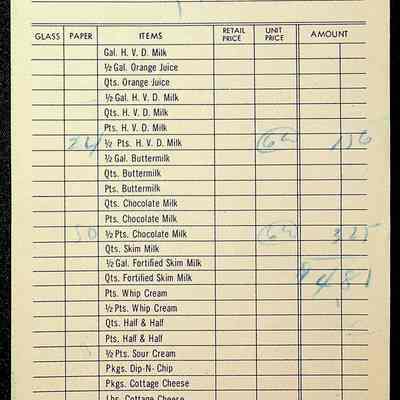 GLASS PAPER ITEMS RETAIL PRICE UNIT PRICE AMOUNT
Gal. H. V. D. Milk
½ Gal. Orange Juice
Qts. Orange Juice
½ Gal. H. V. D. Milk
Qts. H. V. D. Milk
Pts. H. V. D. Milk
24 ½ Pts. H. V. D. Milk 6½ 1 56
½ Gal. Buttermilk
Qts. Buttermilk
Pts. Buttermilk
Qts. Chocolate Milk
Pts. Chocolate Milk
50 ½ Pts. Chocolate Milk 6½ 3 25
Qts. Skim Milk
½ Gal. Fortified Skim Milk
Qts. Fortified Skim Milk $4 81
Pts. Whip Cream
½ Pts. Whip Cream
Qts. Half & Half
Pts. Half & Half
½ Pts. Sour Cream
Pkgs. Dip-N-Chip
Pkgs. Cottage Cheese
Lbs. Cottage Cheese